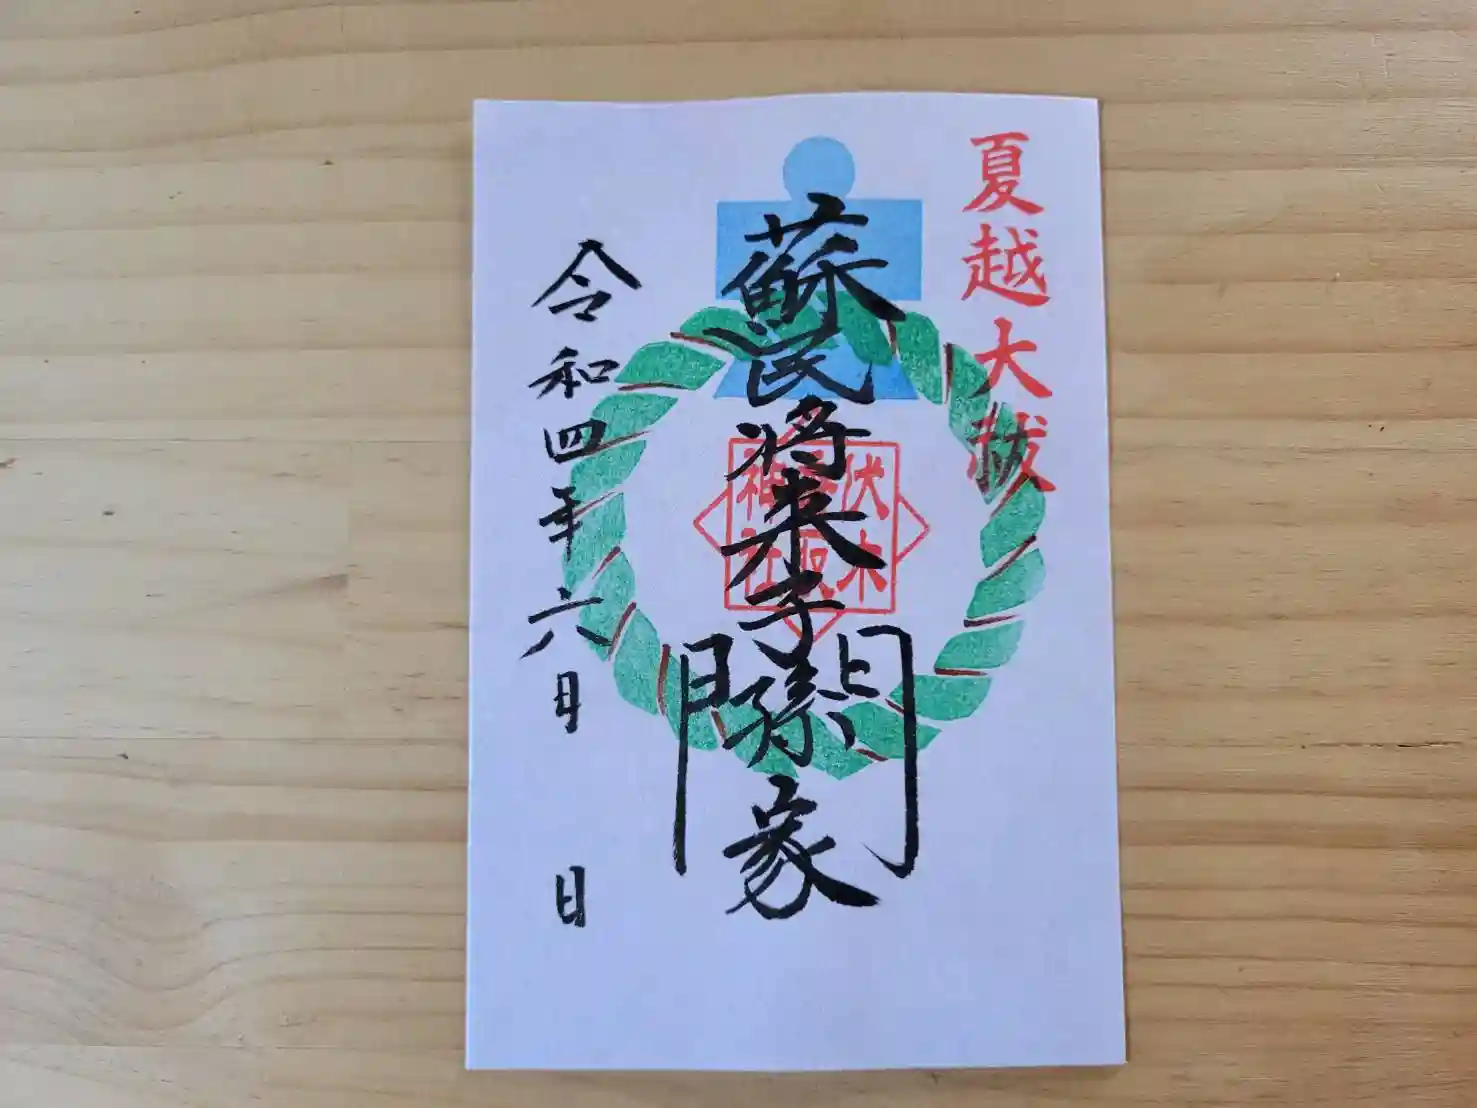 夏越大祓
蘇民将来子孫家門
伏木
香取
神社
令和四年六月 日